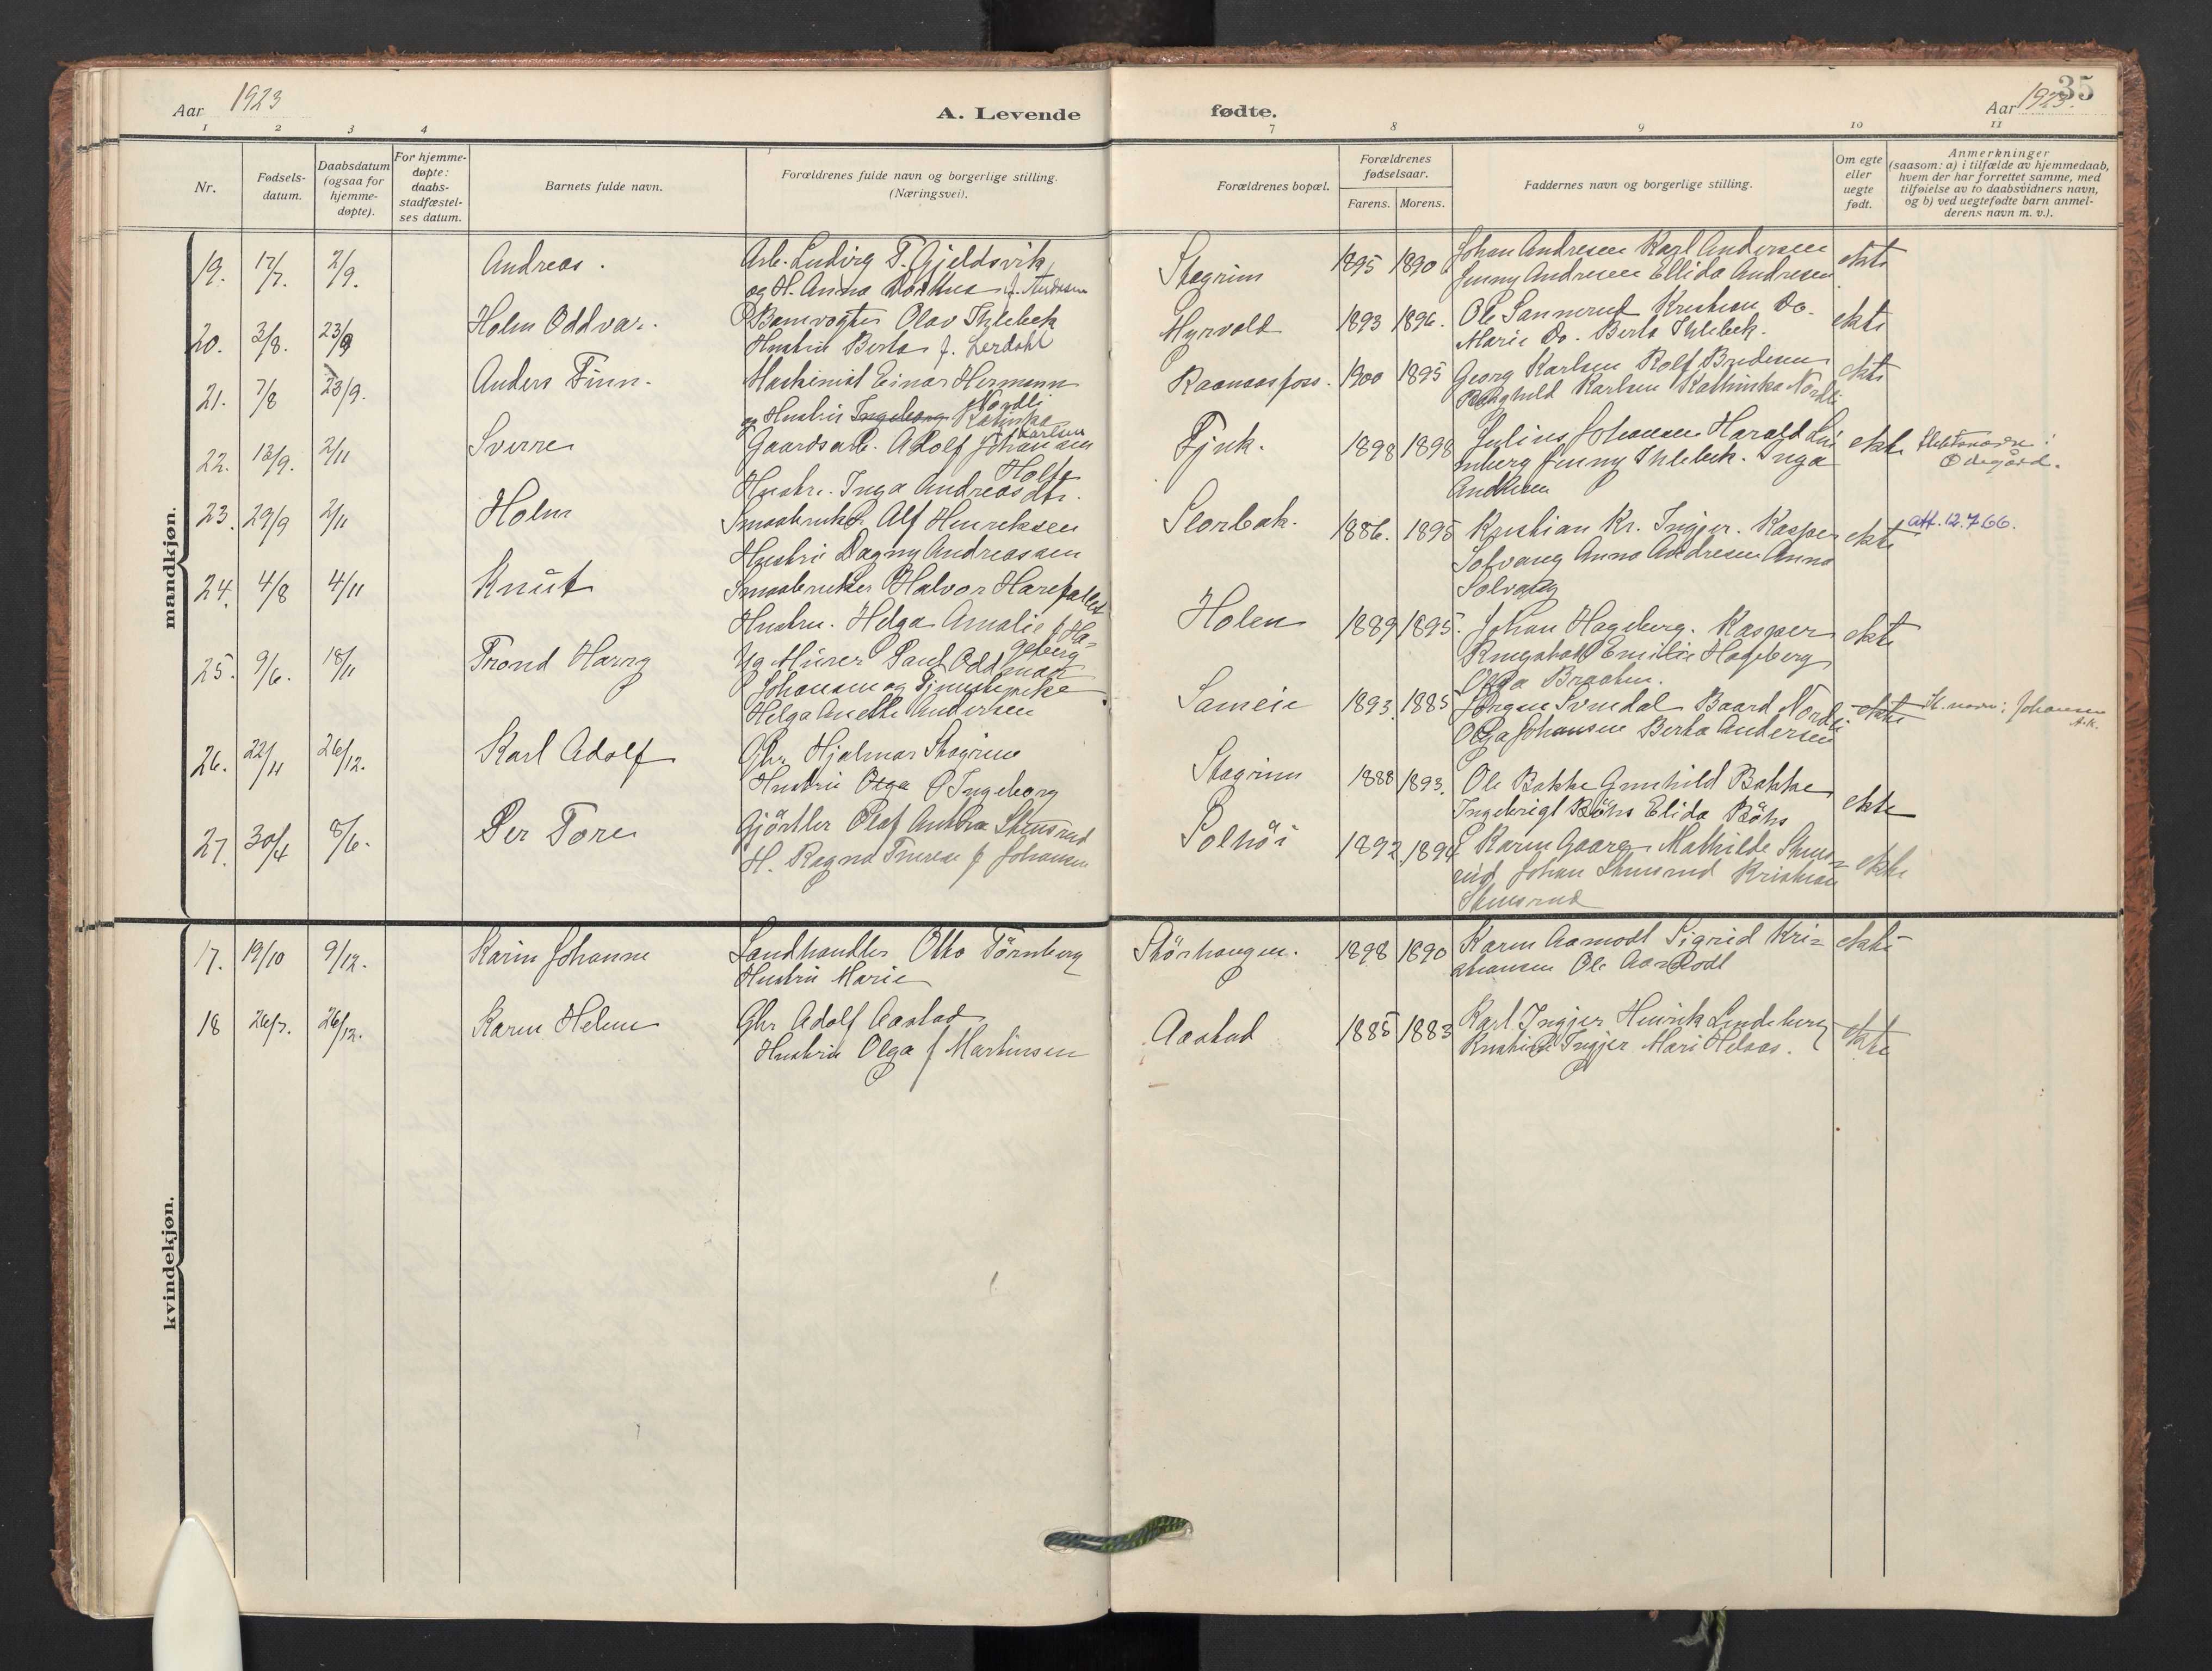 Aar 1923
A. Levende
fødte.
Aar 1923.
35
1 2 3 4
7 8 9 10 11
Nr.
Fødsels-
datum.
Daabsdatum
(ogsaa for
hjemme-
døpte).
For hjemme-
døpte:
daabs-
stadfæstel-
ses datum.
Barnets fulde navn.
Forældrenes fulde navn og borgerlige stilling.
(Næringsvei).
Forældrenes bopæl.
Forældrenes
fødselsaar.
Farens. Morens.
Faddernes navn og borgerlige stilling.
Om egte
eller
uegte
født.
Anmerkninger
(saasom: a) i tilfælde av hjemmedaab,
hvem der har forrettet samme, med
tilføielse av to daabsvidners navn,
og b) ved uegtefødte barn anmel-
derens navn m. v.).
mandkjøn.
19. 17/7. 2/9. Andreas. Arb. Ludvig T. Gjeldsvik
og H. Anna f. Andresen
Skogrim 1895 1890 Johan Andresen Karl Andersen
Jenny Andresen Ellida Andresen
ekte
20. 3/8. 23/9 Holm Oddvar. Banevogter Olav Ihlebek
Hustru Berta f. Lerdahl
Myrvold 1893 1896. Ole Sannerud Kristian Do.
Marie Do. Berta Ihlebek.
ekte
21. 7/8 23/9. Anders Finn. Maskinist Einar Hermann
Nordli
og Hustru Ingeborg Katinka
Karlsen
Raanaasfoss. 1900 1895 Georg Karlsen Rolf Bredesen
Ragnhild Karlsen Kathinka Nordli
ekte
22. 13/9. 2/11 Sverre Gaardsarb. Adolf Johansen
Holt
Hustru. Inga Andreasdtr.
Fjuk. 1898 1898 Julius Johansen Harald Lin
enberg Jenny Ihlebek. Inga
Andresen
ekte Slektsnavn:
Ødegård.
23. 29/9 2/11 Holm Smaabruker Alf Henriksen
Hustru Dagny Andreassen
Storbak. 1886. 1895 Kristian Kr. Ingjer. Kasper
Solvang Anna Andresen Anna
Solvang
ekte att. 12.7.66.
24. 4/8 4/11 Knut Smaabruker Halvor Harefallet
Hustru. Helga Amalie f. Ha-
geberg
Holen 1889 1895. Johan Hageberg. Kasper
Emilie Hageberg
Olga Braaten.
ekte
25. 9/6. 18/11 Trond Harry Ug. Murer Paul Oddmar
Johansen og Tjenestepike
Helga Anette Andersen
Sameie 1893. 1885 Jørgen Svindal Baard Nordli
Olga Johansen Berta Andersen
ekte Sl. navn: Johansen
A.K.
26. 22/11 26/12. Karl Adolf Gbr. Hjalmar Skogrim
Hustru Olga Ingeborg
Skogrim 1888 1893. Ole Bakke Gunhild Bakke
Ingebrigt Böhs Elida Böhs
ekte
27. 30/4 8/6. Per Tore Gjörtler Olaf Stensrud
H. Ragna Therese f Johansen
Solhöi 1892. 1894 Karen Gaarer Mathilde Stens-
rud Johan Stensrud Kristian
Stensrud
ekte
kvindekjøn.
17. 19/10 9/12. Karin Johanne Landhandler Otto Törnberg
Hustru Marie
Skörhaugen. 1898 1890 Karen Aamodt Sigrid Kri-
stiansen Ole Aamodt
ekte
18 26/7. 26/12. Karen Helene Gbr Adolf Aastad
Hustru Olga f Martinsen
Aastad 1885 1883 Karl Ingjer Henrik Lindeberg
Kristine Ingjer Mari Helaas.
ekte